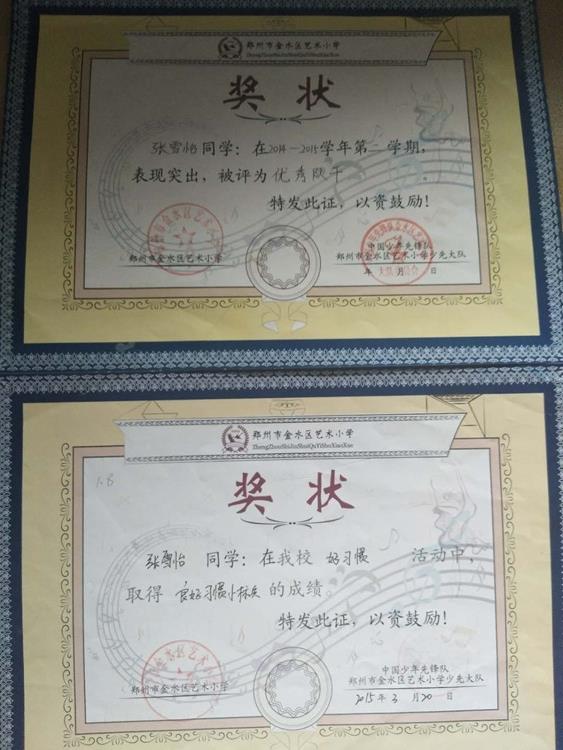 郑州市金水区艺术小学
ZhengZhouShiJinShuiQuYiShuXiaoXue
奖 状
张雪怡同学：在2014-2015学年第二学期，
表现突出，被评为优秀队干。
特发此证，以资鼓励！
中国少年先锋队
郑州市金水区艺术小学 郑州市金水区艺术小学少先大队
年 月 日
郑州市金水区艺术小学
ZhengZhouShiJinShuiQuYiShuXiaoXue
奖 状
1.8
张雪怡 同学：在我校 好习惯 活动中，
取得 良好习惯小标兵 的成绩。
特发此证，以资鼓励！
中国少年先锋队
郑州市金水区艺术小学 郑州市金水区艺术小学少先大队
2015年3月20日